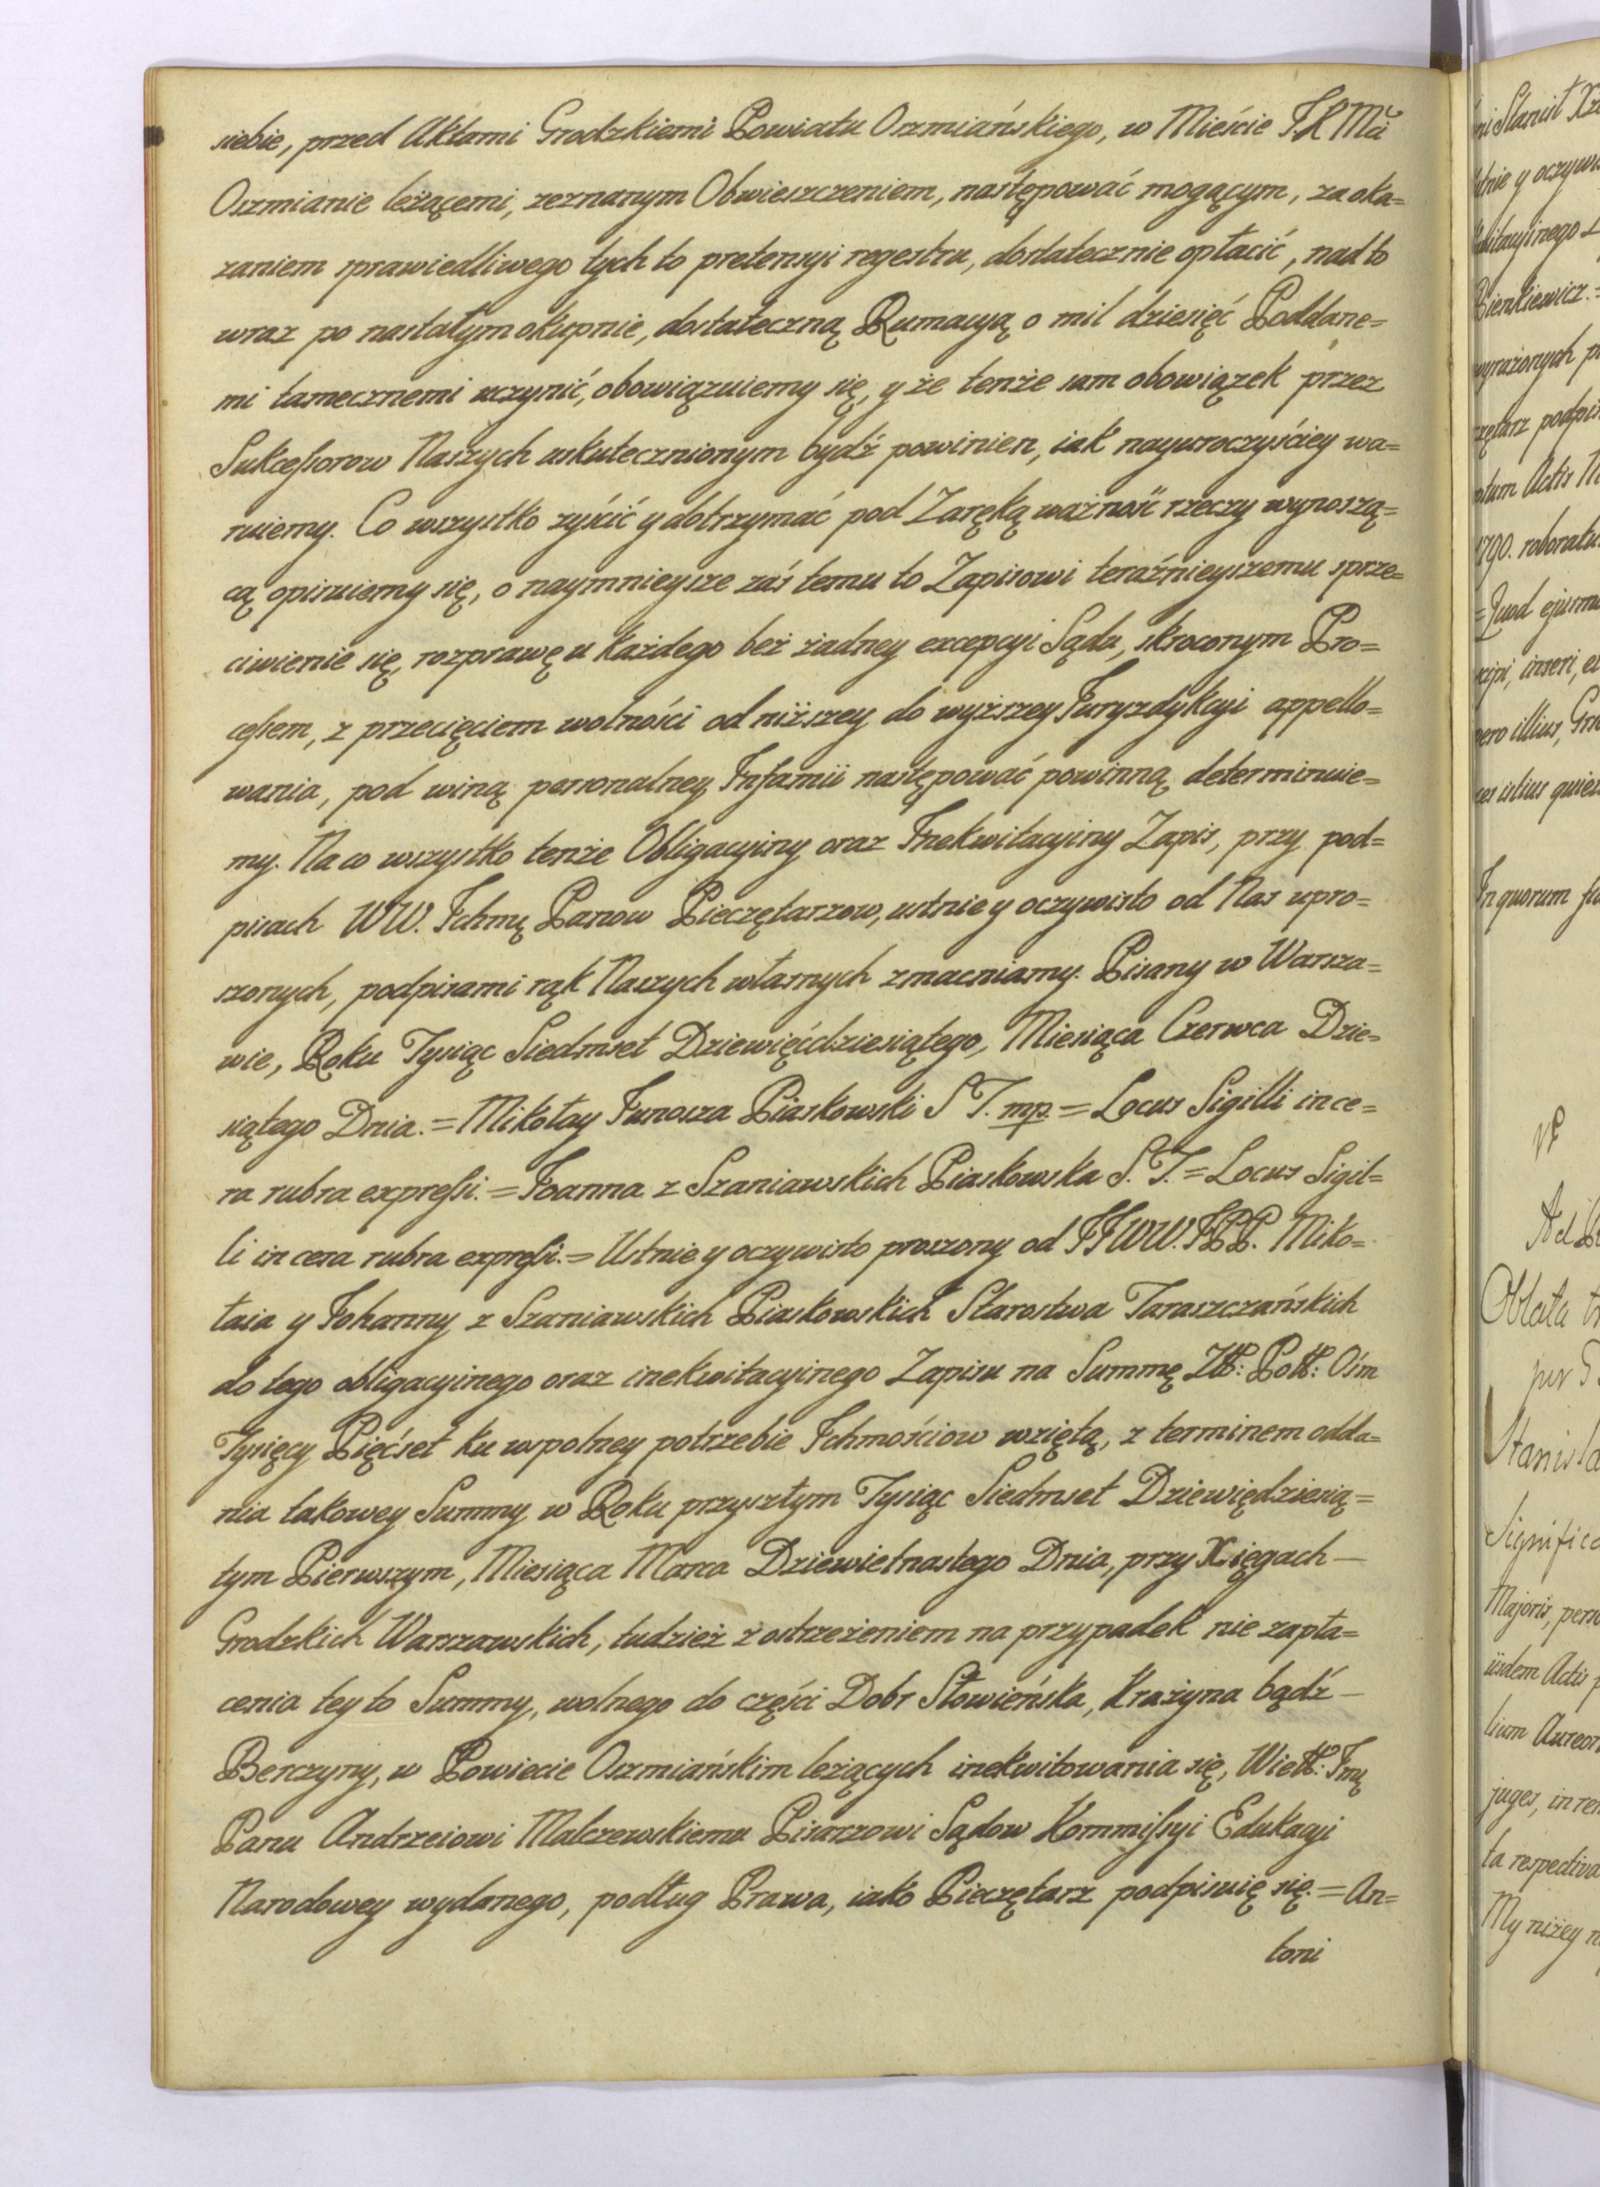 siebie, przed Aktami Grodzkiemi Powiatu Oszmiańskiego, w Mieście J.K Mci
Oszmianie leżącemi, zeznanym Obwieszczeniem, następować mogącym, za oka=
zaniem sprawiedliwego tych to pretensyi regestru, dostatecznie opłacić, nad to
wraz po nastałym okupnie, dostateczną Rumacyą o mil dziesięć Poddane=
mi tamecznemi uczynić, obowiązuiemy się, y że tenże sam obowiązek przez
Sukcessorow Naszych uskutecznionym bydź powinien, iak nayuroczyściey wa=
ruiemy. Co wszystko zyścić y dotrzymać pod Zaręką ważność rzeczy wynoszą=
cą opisuiemy się, o naymnieysze zaś temu to Zapisowi teraźnieyszemu sprze=
ciwienie się, rozprawę u każdego bez żadney excepcyi Sądu, skroconym Pro=
cessem, z przecięciem wolności od niższey do wyższey Juryzdykcyi appello=
wania, pod winą personalney Infamii następować powinną determinuie=
my. Na co wszystko tenże Obligacyiny oraz Inekwitacyiny Zapis, przy pod=
pisach WW. Ichmę Panow Pieczętarzow, ustnie y oczywisto od Nas upro=
szonych, podpisami rąk Naszych własnych zmacniamy. Pisany w Warsza=
wie, Roku Tysiąc Siedmset Dziewięćdziesiątego, Miesiąca Czerwca Dzie=
siątego Dnia. = Mikołay Junosza Piaskowski S T. mp. = Locus Sigilli in ce=
ra rubra expressi. = Joanna z Szaniawskich Piaskowska S. T. = Locus Sigil=
li in cera rubra expressi. = Ustnie y oczywisto proszony od JJWW. JPP. Miko=
łaia y Johanny z Szaniawskich Piaskowskich Starostwa Taraszczańskich
do tego obligacyinego oraz inekwitacyinego Zapisu na Summę Złł: Polł: Ośm
Tysięcy Pięćset ku wspolney potrzebie Ichmościow wziętą, z terminem odda=
nia takowey Summy w Roku przyszłym Tysiąc Siedmset Dziewiędziesią=
tym Pierwszym, Miesiąca Marca Dziewietnastego Dnia, przy Xięgach —
Grodzkich Warszawskich, tudzież z ostrzeżeniem na przypadek nie zapła=
cenia tey to Summy, wolnego do części Dobr Słowieńska, Krażyna bądź —
Berczyny, w Powiecie Oszmiańskim leżących inekwitowania się, Wielł: Jmę
Panu Andrzeiowi Malczewskiemu Pisarzowi Sądow Kommissyi Edukacyi
Narodowey wydanego, podług Prawa, iako Pieczętarz podpisuię się. = An=
toni
ni Stanisł
y oczywi
Bienkiewicz. =
wyrażonych
podpis
Actis
1790. roboratu
= Quod ejusm
inseri, e
illius,
In quorum
Ad
Oblata
per
Stanisla
Significa
Majoris, pers
iisdem Actis p
lium Aureor
juges, in rem
ta respectiva
My niżey n